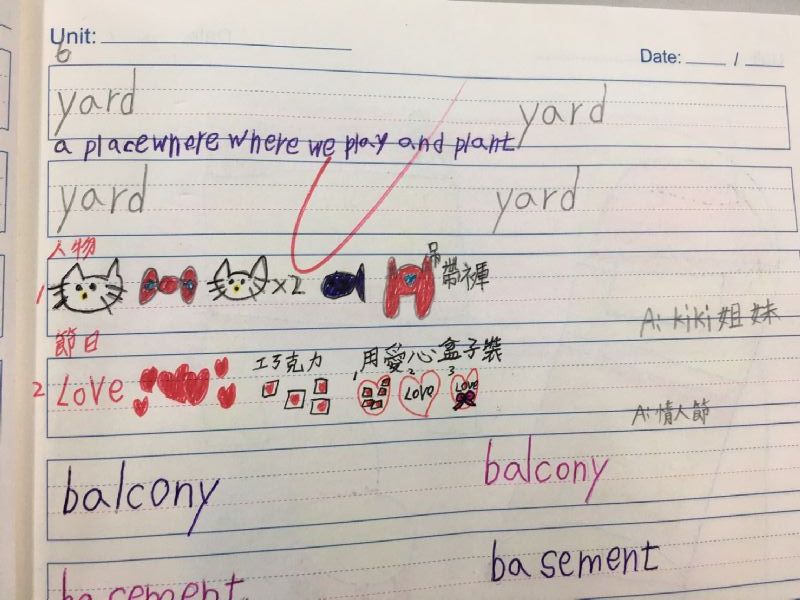 Unit:
6
Date: /
yard yard
a place where where we play and plant
yard yard
人物
1 x2 吊帶褲
A: kiki姐妹
節日
2 Love 工巧克力 用愛心盒子裝
1 2 Love 3 Love
A: 情人節
balcony balcony
basement basement